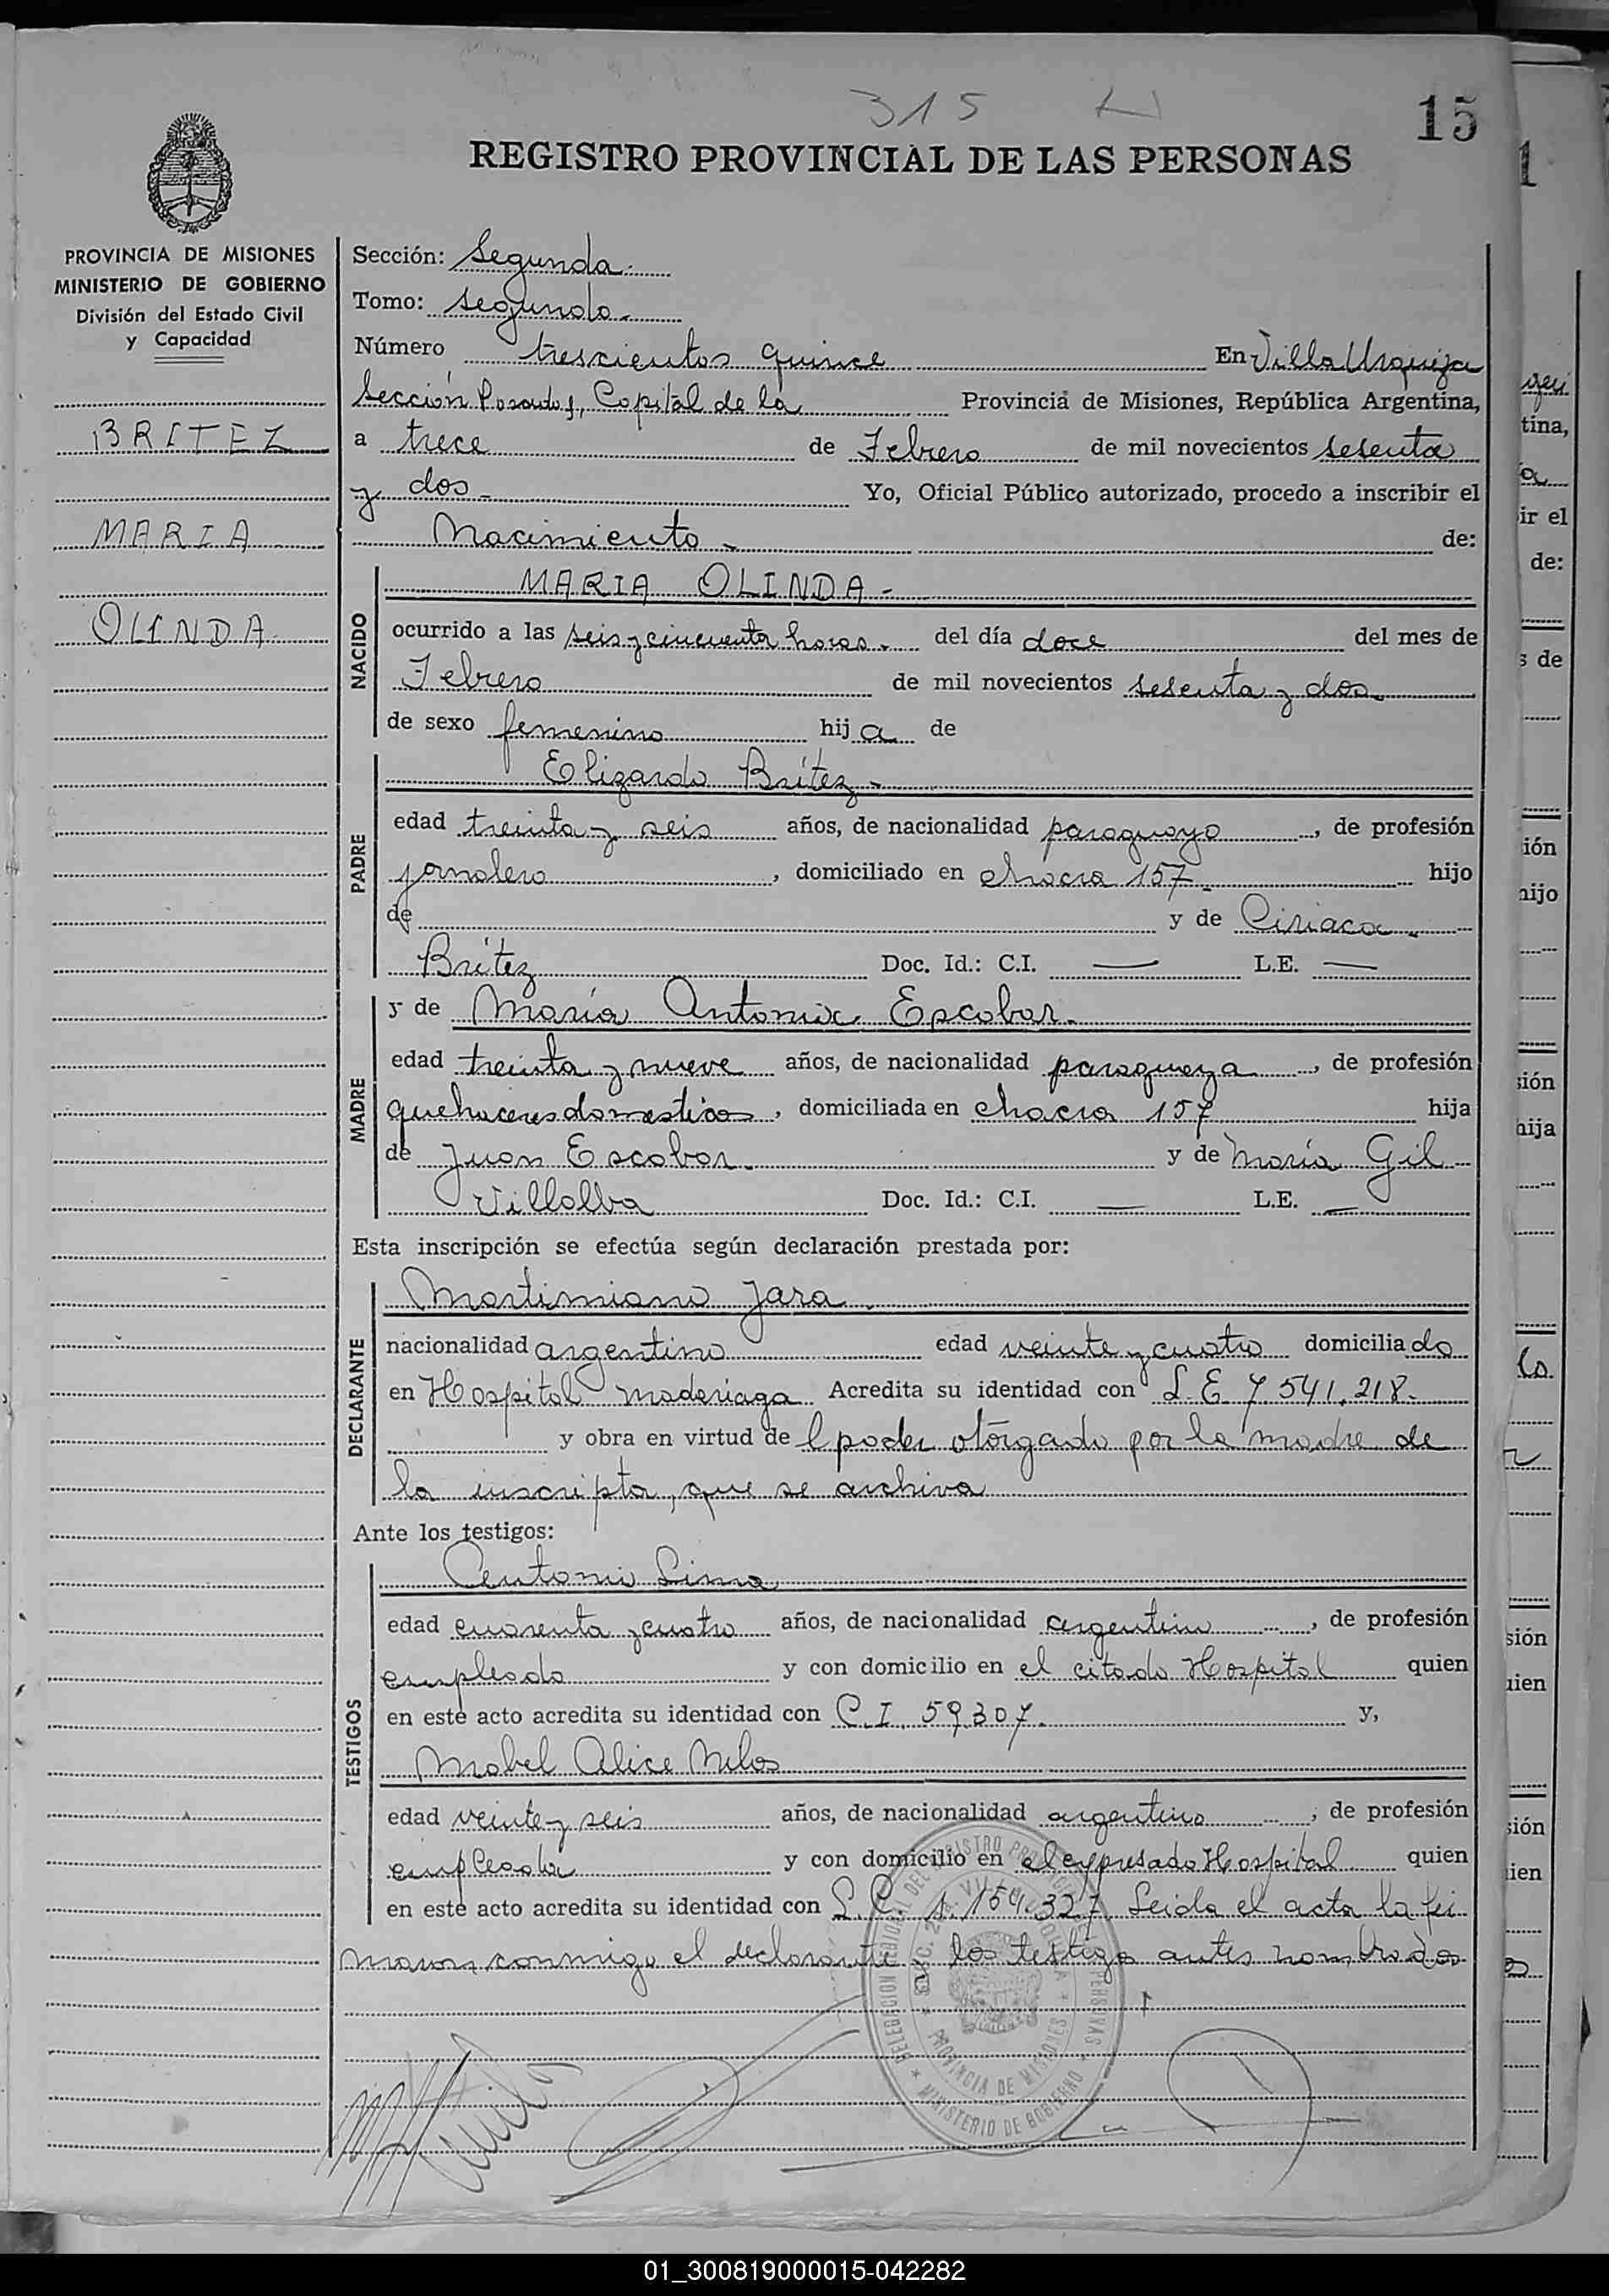 315
15
REGISTRO PROVINCIAL DE LAS PERSONAS
PROVINCIA DE MISIONES
MINISTERIO DE GOBIERNO
División del Estado Civil
y Capacidad
BRITEZ
MARIA
OLINDA
Sección: Segunda.
Tomo: segundo.
Número trescientos quince En Villa Urquiza
Sección Posadas, Capital de la Provincia de Misiones, República Argentina,
a trece de Febrero de mil novecientos sesenta
y dos Yo, Oficial Público autorizado, procedo a inscribir el
Nacimiento de:
NACIDO
MARIA OLINDA
ocurrido a las seis y cincuenta horas. del día doce del mes de
Febrero de mil novecientos sesenta y dos
de sexo femenino hija de
PADRE
Elizardo Brítez
edad treinta y seis años, de nacionalidad paraguayo, de profesión
jornalero, domiciliado en chacra 157 hijo
de y de Ciriaca
Brítez Doc. Id.: C.I. — L.E. —
MADRE
y de María Antonia Escobar.
edad treinta y nueve años, de nacionalidad paraguaya, de profesión
quehaceres domesticos, domiciliada en chacra 157 hija
de Juan Escobar. y de María Gil
Villalba Doc. Id.: C.I. — L.E. —
Esta inscripción se efectúa según declaración prestada por:
DECLARANTE
Martimiano Jara
nacionalidad argentino edad veinte y cuatro domiciliado
en Hospital Madariaga Acredita su identidad con L.E 7.541.218.
y obra en virtud del poder otorgado por la madre de
la inscripta, que se archiva
Ante los testigos:
TESTIGOS
Antonio Lima
edad cuarenta y cuatro años, de nacionalidad argentino, de profesión
empleado y con domicilio en el citado Hospital quien
en este acto acredita su identidad con C.I. 59307. y,
Mabel Alice
edad veinte y seis años, de nacionalidad argentina, de profesión
empleada y con domicilio en el expresado Hospital quien
en este acto acredita su identidad con L.C. 1.154.327 Leida el acta la fir
maron conmigo el declarante los testigo antes nombrados
DELEGACION REGIONAL DEL REGISTRO PROVINCIAL DE LAS PERSONAS
PROVINCIA DE MISIONES
MINISTERIO DE GOBIERNO
01_300819000015-042282